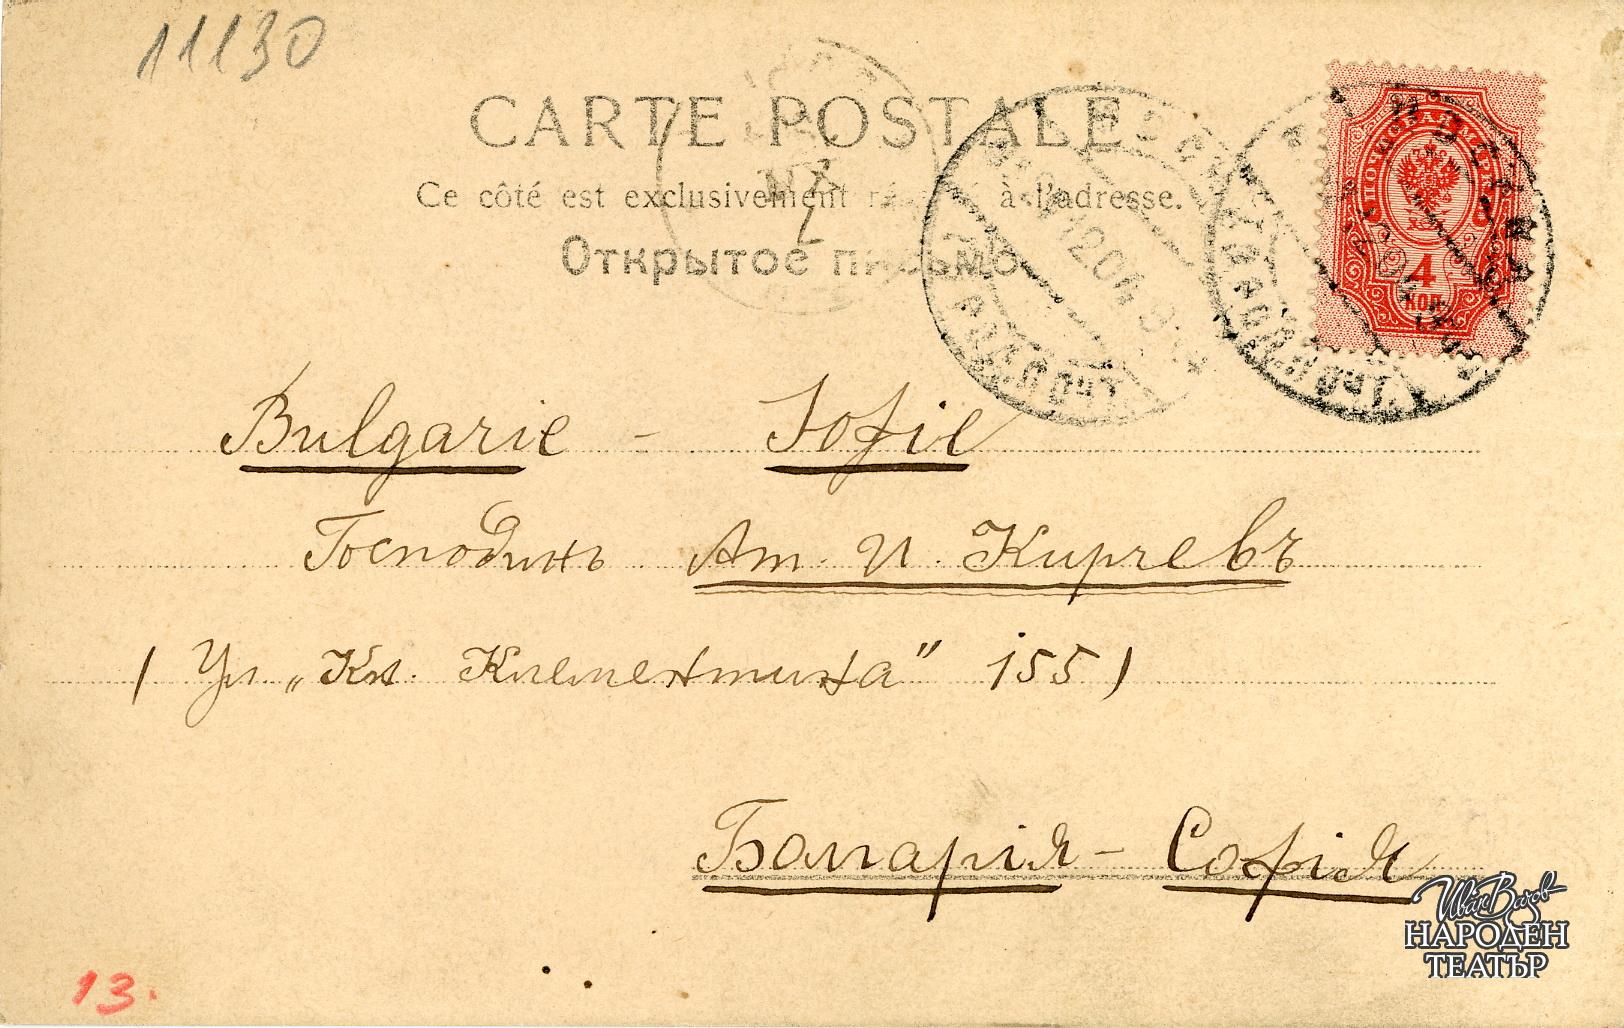 11130
CARTE POSTALE
Ce côté est exclusivement réservé à l'adresse.
Открытое письмо
4
КОП.
Bulgarie - Sofie
Господинъ Ат. И. Кирчевъ
( Ул "Кл. Клементина" 155)
Болгарія - Софія
13.
Иван Вазов
НАРОДЕН
ТЕАТЪР